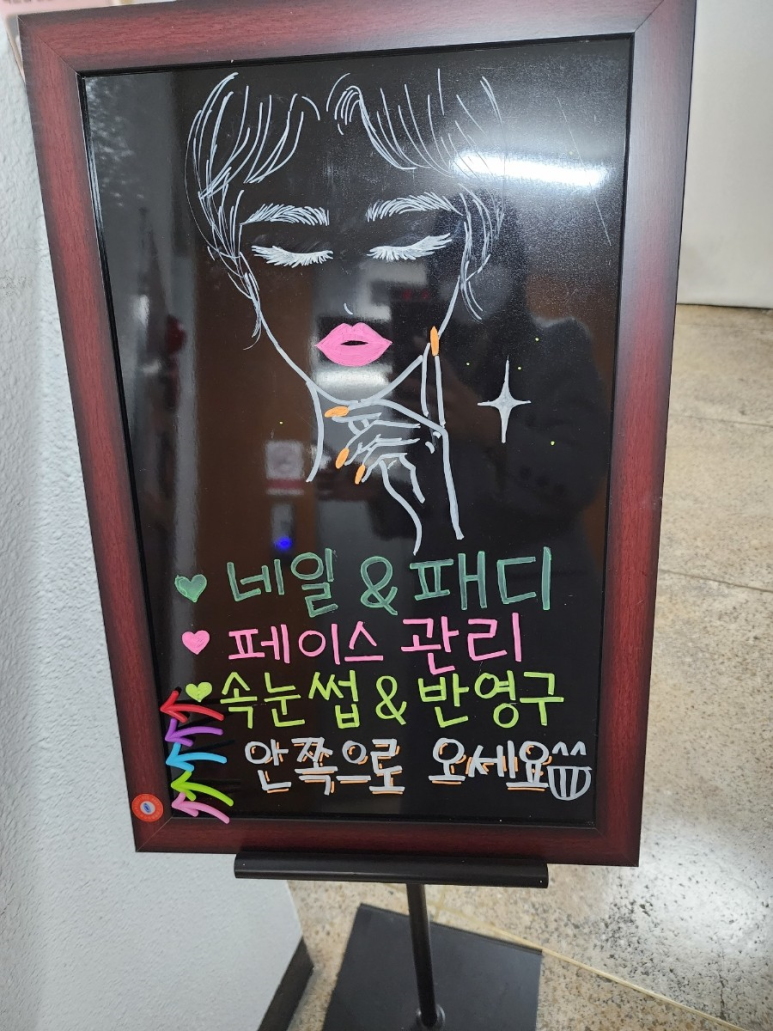 ♥ 네일 & 패디
♥ 페이스 관리
♥ 속눈썹 & 반영구
안쪽으로 오세요^^